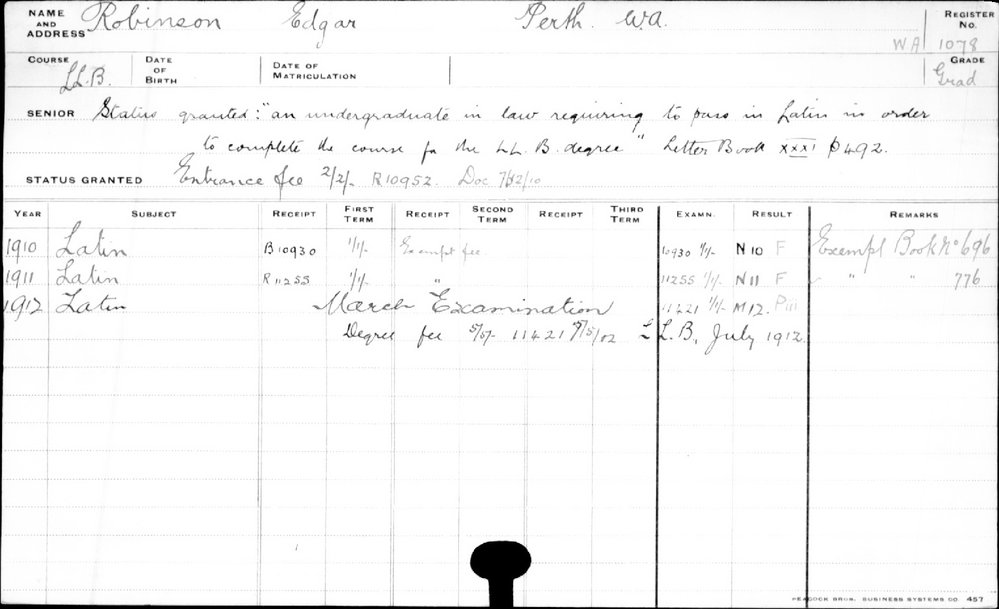 NAME AND ADDRESS Robinson Edgar Perth. W.A. REGISTER No. W A 1078
COURSE LL.B. DATE OF BIRTH DATE OF MATRICULATION GRADE Grad
SENIOR Status granted: "an undergraduate in law requiring to pass in Latin in order
to complete the course for the LL.B. degree" Letter Book XXXI p492.
STATUS GRANTED Entrance fee 2/2/- R10952. Doc 7/12/10
YEAR SUBJECT RECEIPT FIRST TERM RECEIPT SECOND TERM RECEIPT THIRD TERM EXAMN. RESULT REMARKS
1910 Latin B10930 1/1/- Exempt fee 10930 1/1/- N10 F Exempt Book No 696
1911 Latin R11255 1/1/- " 11255 1/1/- N11 F " " 776
1912 Latin March Examination 11421 1/1/- M12. Piii
Degree fee 5/5/- 11421 LL.B. July 1912
PEACOCK BROS. BUSINESS SYSTEMS CO. 457